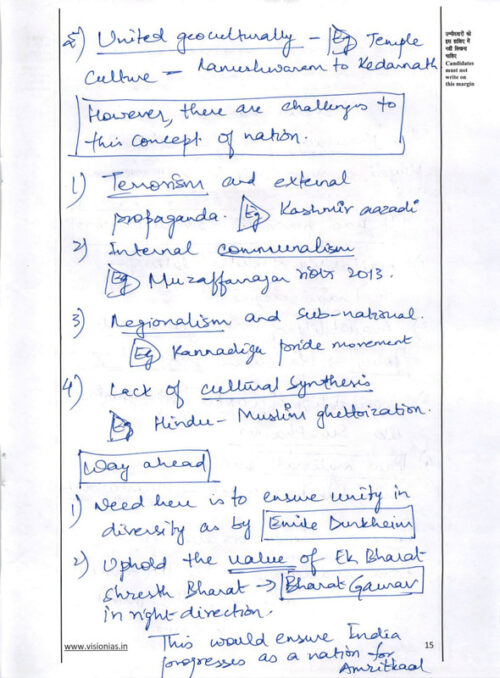 5) United geoculturally - Eg Temple
Culture - Rameshwaram to Kedarnath
However, there are challenges to
this concept of nation.
1) Terrorism and external
propaganda. Eg Kashmir aazadi
2) Internal communalism
Eg Muzaffarnagar riots 2013.
3) Regionalism and sub-national.
Eg Kannadiga pride movement
4) Lack of cultural synthesis
Eg Hindu-Muslim ghettoization.
Way ahead
1) Need here is to ensure unity in
diversity as by Emile Durkheim
2) Uphold the value of Ek Bharat
Shresth Bharat → Bharat Gaurav
in right direction.
This would ensure India
progresses as a nation for
Amritkaal
उम्मीदवारों को
इस हाशिए में
नहीं लिखना
चाहिए
Candidates
must not
write on
this margin
www.visionias.in
15